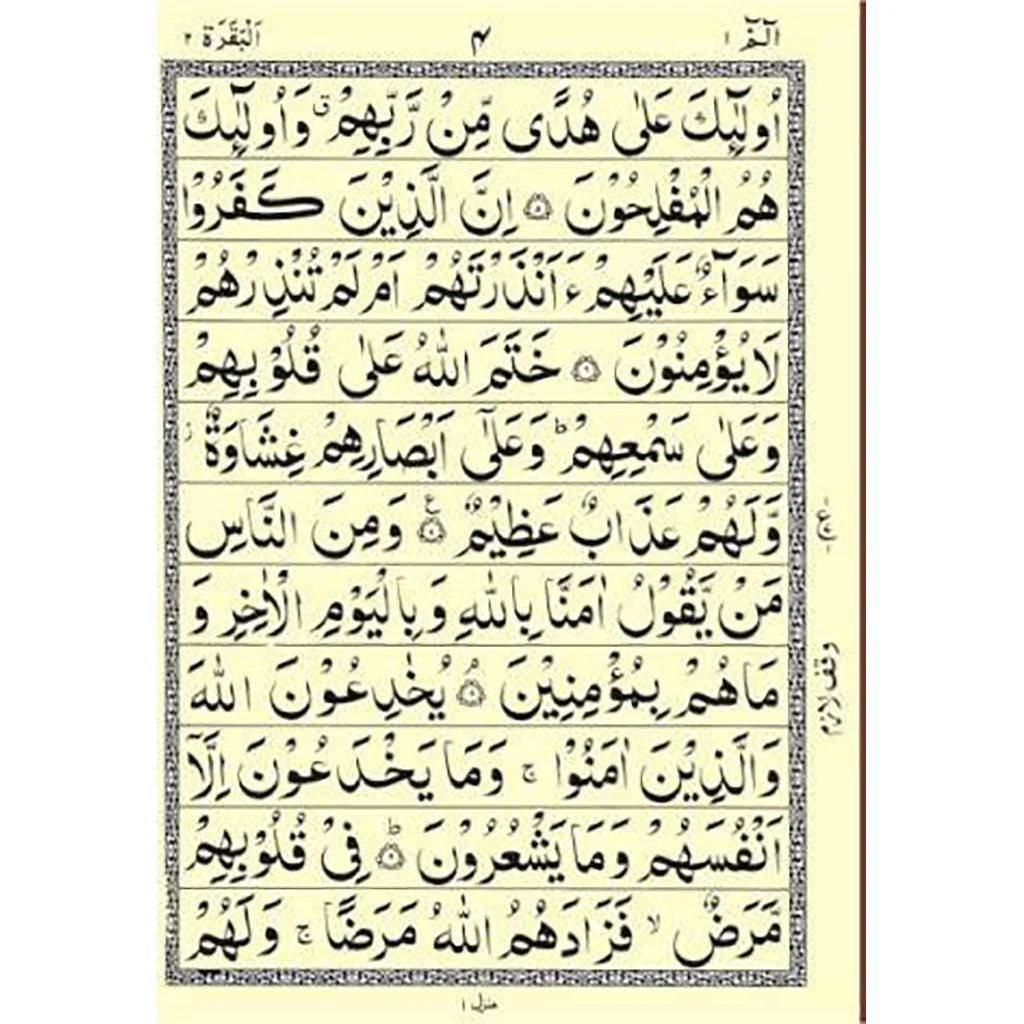 الٓمّٓ ١ ۴ اَلْبَقَرَة ٢
اُولٰٓئِكَ عَلٰى هُدًى مِّنْ رَّبِّهِمْ ۗ وَاُولٰٓئِكَ
هُمُ الْمُفْلِحُوْنَ ۝۵ اِنَّ الَّذِيْنَ كَفَرُوْا
سَوَآءٌ عَلَيْهِمْ ءَاَنْذَرْتَهُمْ اَمْ لَمْ تُنْذِرْهُمْ
لَا يُؤْمِنُوْنَ ۝۶ خَتَمَ اللّٰهُ عَلٰى قُلُوْبِهِمْ
وَعَلٰى سَمْعِهِمْ ؕ وَعَلٰٓى اَبْصَارِهِمْ غِشَاوَةٌ ز
وَّلَهُمْ عَذَابٌ عَظِيْمٌ ۝۷ ع وَمِنَ النَّاسِ
مَنْ يَّقُوْلُ اٰمَنَّا بِاللّٰهِ وَبِالْيَوْمِ الْاٰخِرِ وَ
مَا هُمْ بِمُؤْمِنِيْنَ ۝۸ۘ يُخٰدِعُوْنَ اللّٰهَ
وَالَّذِيْنَ اٰمَنُوْا ۚ وَمَا يَخْدَعُوْنَ اِلَّاۤ
اَنْفُسَهُمْ وَمَا يَشْعُرُوْنَ ۝۹ؕ فِيْ قُلُوْبِهِمْ
مَّرَضٌ ۙ فَزَادَهُمُ اللّٰهُ مَرَضًا ۚ وَلَهُمْ
وقف لازم
منزل ١